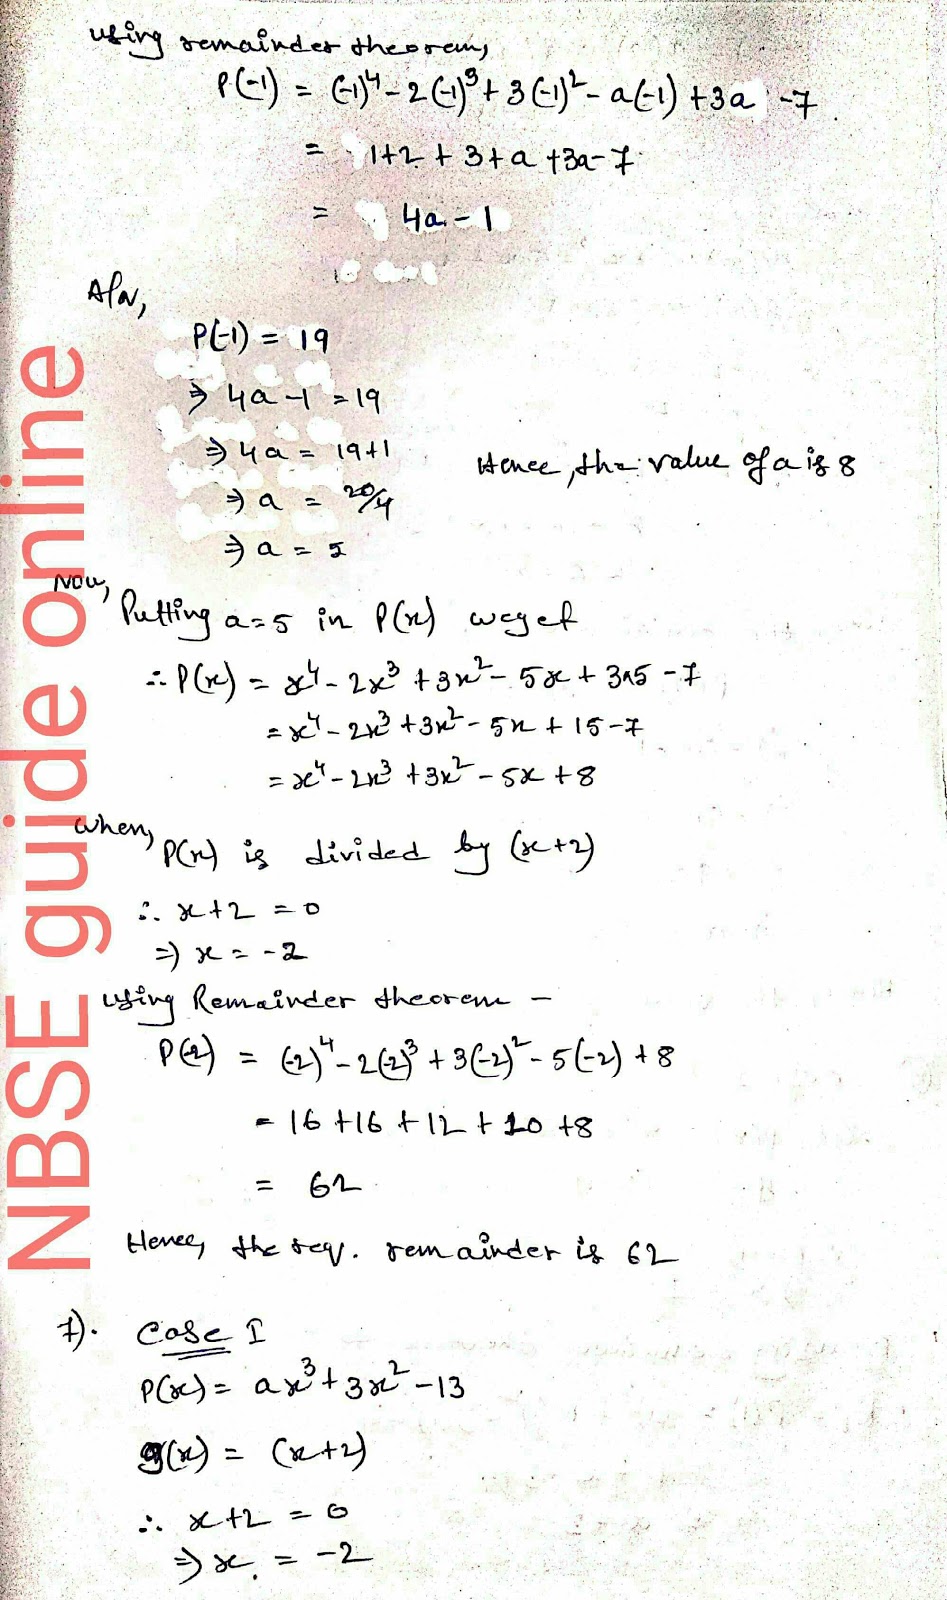 using remainder theorem,
P(-1) = (-1)⁴ - 2(-1)³ + 3(-1)² - a(-1) + 3a - 7
= 1+2+3+a+3a-7
= 4a-1
Also,
P(-1) = 19
⇒ 4a-1 = 19
⇒ 4a = 19+1
Hence, the value of a is 8
⇒ a = 20/4
⇒ a = 5
Now,
Putting a=5 in P(x) we get
∴ P(x) = x⁴ - 2x³ + 3x² - 5x + 3×5 - 7
= x⁴ - 2x³ + 3x² - 5x + 15 - 7
= x⁴ - 2x³ + 3x² - 5x + 8
when,
P(x) is divided by (x+2)
∴ x+2 = 0
⇒ x = -2
using Remainder theorem -
P(-2) = (-2)⁴ - 2(-2)³ + 3(-2)² - 5(-2) + 8
= 16+16+12+10+8
= 62
Hence, the req. remainder is 62
7). Case I
P(x) = ax³ + 3x² - 13
g(x) = (x+2)
∴ x+2 = 0
⇒ x = -2
NBSE guide online